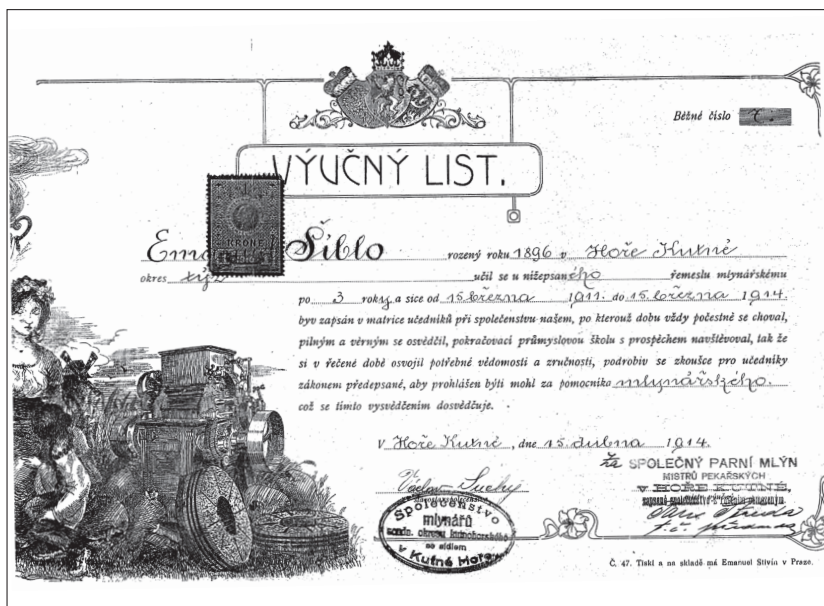 Běžné číslo
VÝUČNÝ LIST.
KRONE
Ema Šiblo rozený roku 1896 v Hoře Kutné
okres týž učil se u nížepsaného řemeslu mlynářskému
po 3 roky a sice od 15. března 1911. do 15. března 1914.
byv zapsán v matrice učedníků při společenstvu našem, po kterouž dobu vždy počestně se choval,
pilným a věrným se osvědčil, pokračovací průmyslovou školu s prospěchem navštěvoval, tak že
si v řečené době osvojil potřebné vědomosti a zručnosti, podrobiv se zkoušce pro učedníky
zákonem předepsané, aby prohlášen býti mohl za pomocníka mlynářského.
což se tímto vysvědčením dosvědčuje.
V Hoře Kutné, dne 15. dubna 1914.
za SPOLEČNÝ PARNÍ MLÝN
MISTRŮ PEKAŘSKÝCH
v HOŘE KUTNÉ,
Václav Suchý
Společenstvo
mlynářů
okresu kutnohorského
se sídlem
v Kutné Hoře
Č. 47. Tiskl a na skladě má Emanuel Stivín v Praze.